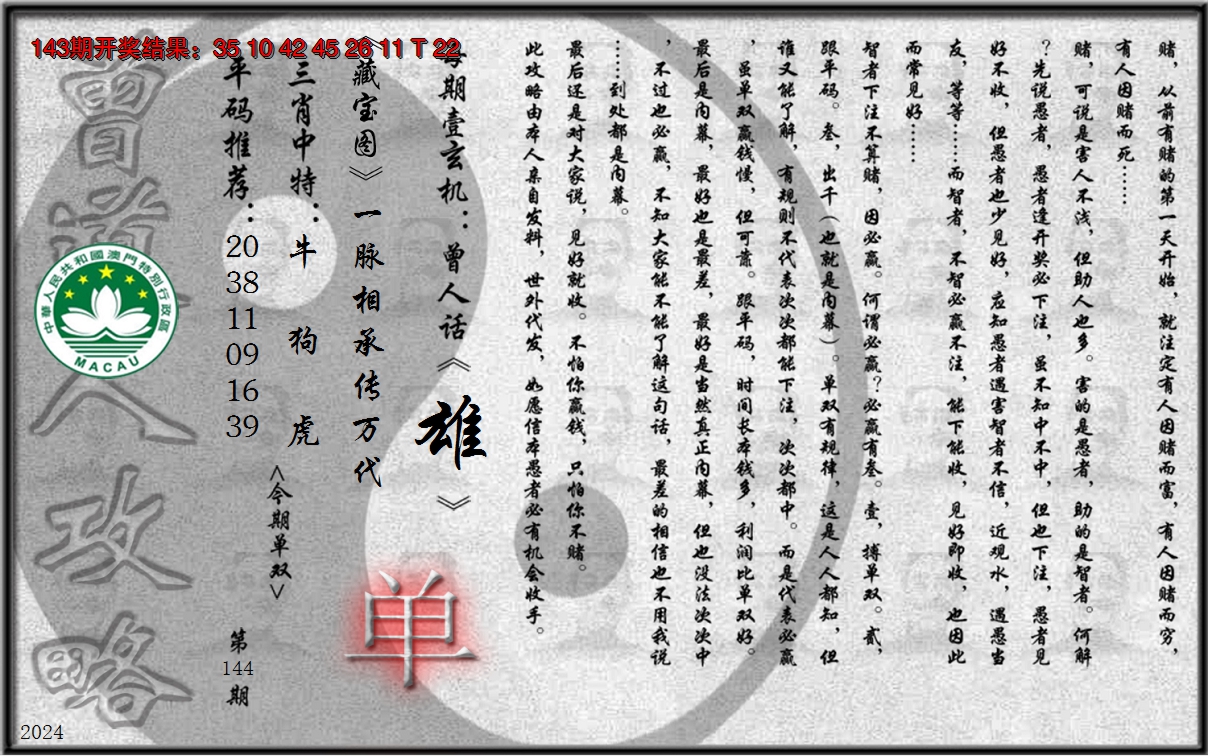 143期开奖结果：35 10 42 45 26 11 T 22
赌，从前有赌的第一天开始，就注定有人因赌而富，有人因赌而穷，
有人因赌而死……
赌，可说是害人不浅，但助人也多。害的是愚者，助的是智者。何解
？先说愚者，愚者逢开奖必下注，虽不知中不中，但也下注，愚者见
好不收，但愚者也少见好，应知愚者遇害智者不信，近观水，遇愚当
友，等等……而智者，不智必赢不注，能下能收，见好即收，也因此
而常见好……
智者下注不算赌，因必赢。何谓必赢？必赢有叁。壹，搏单双。贰，
跟平码。叁，出千（也就是内幕）。单双有规律，这是人人都知，但
谁又能了解，有规则不代表次次都能下注，次次都中。而是代表必赢
，虽单双赢钱慢，但可靠。跟平码，时间长本钱多，利润比单双好。
最后是内幕，最好也是最差，最好是当然真正内幕，但也没法次次中
，不过也必赢，不知大家能不能了解这句话，最差的相信也不用我说
……到处都是内幕。
最后还是对大家说，见好就收。不怕你赢钱，只怕你不赌。
此攻略由本人亲自发料，世外代发，如愿信本愚者必有机会收手。
每期壹玄机：曾人话《雄》
《藏宝图》一脉相承传万代
单
三肖中特：牛 狗 虎
<今期单双>
平码推荐：20 38 11 09 16 39
第144期
曾道人攻略
中華人民共和國澳門特別行政區
MACAU
2024